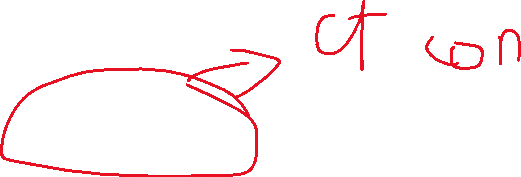 ct con